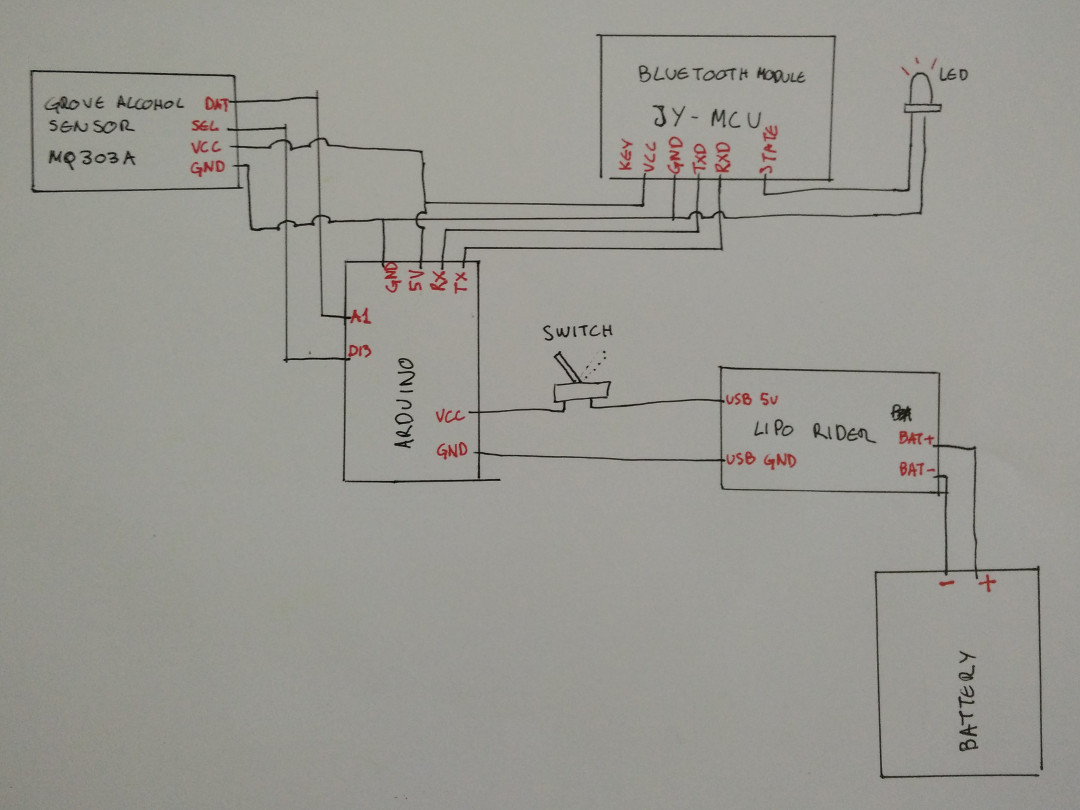 GROVE ALCOHOL
SENSOR
MQ303A
DAT
SEL
VCC
GND
BLUETOOTH MODULE
JY-MCU
KEY
VCC
GND
TXD
RXD
STATE
LED
GND
5V
RX
TX
A1
D13
ARDUINO
VCC
GND
SWITCH
USB 5V
LIPO RIDER
USB GND
BAT+
BAT-
- +
BATTERY